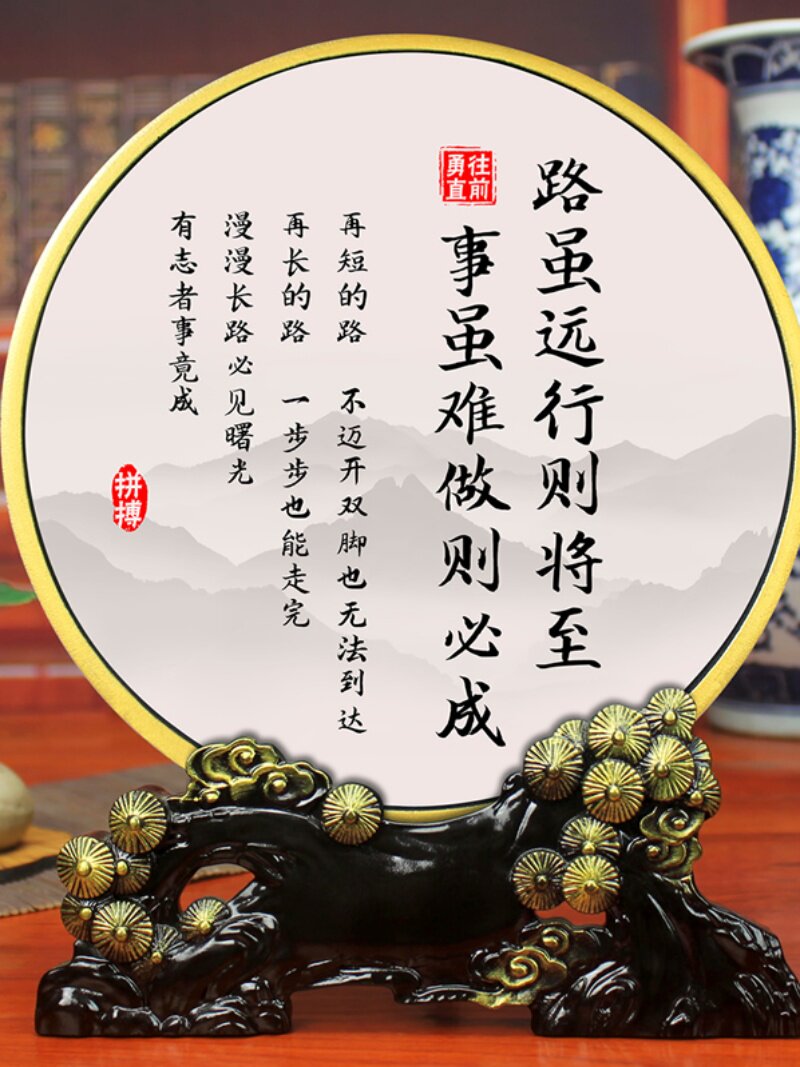 路虽远行则将至
勇往直前
事虽难做则必成
再短的路 不迈开双脚也无法到达
再长的路 一步步也能走完
漫漫长路必见曙光
有志者事竟成
拼搏